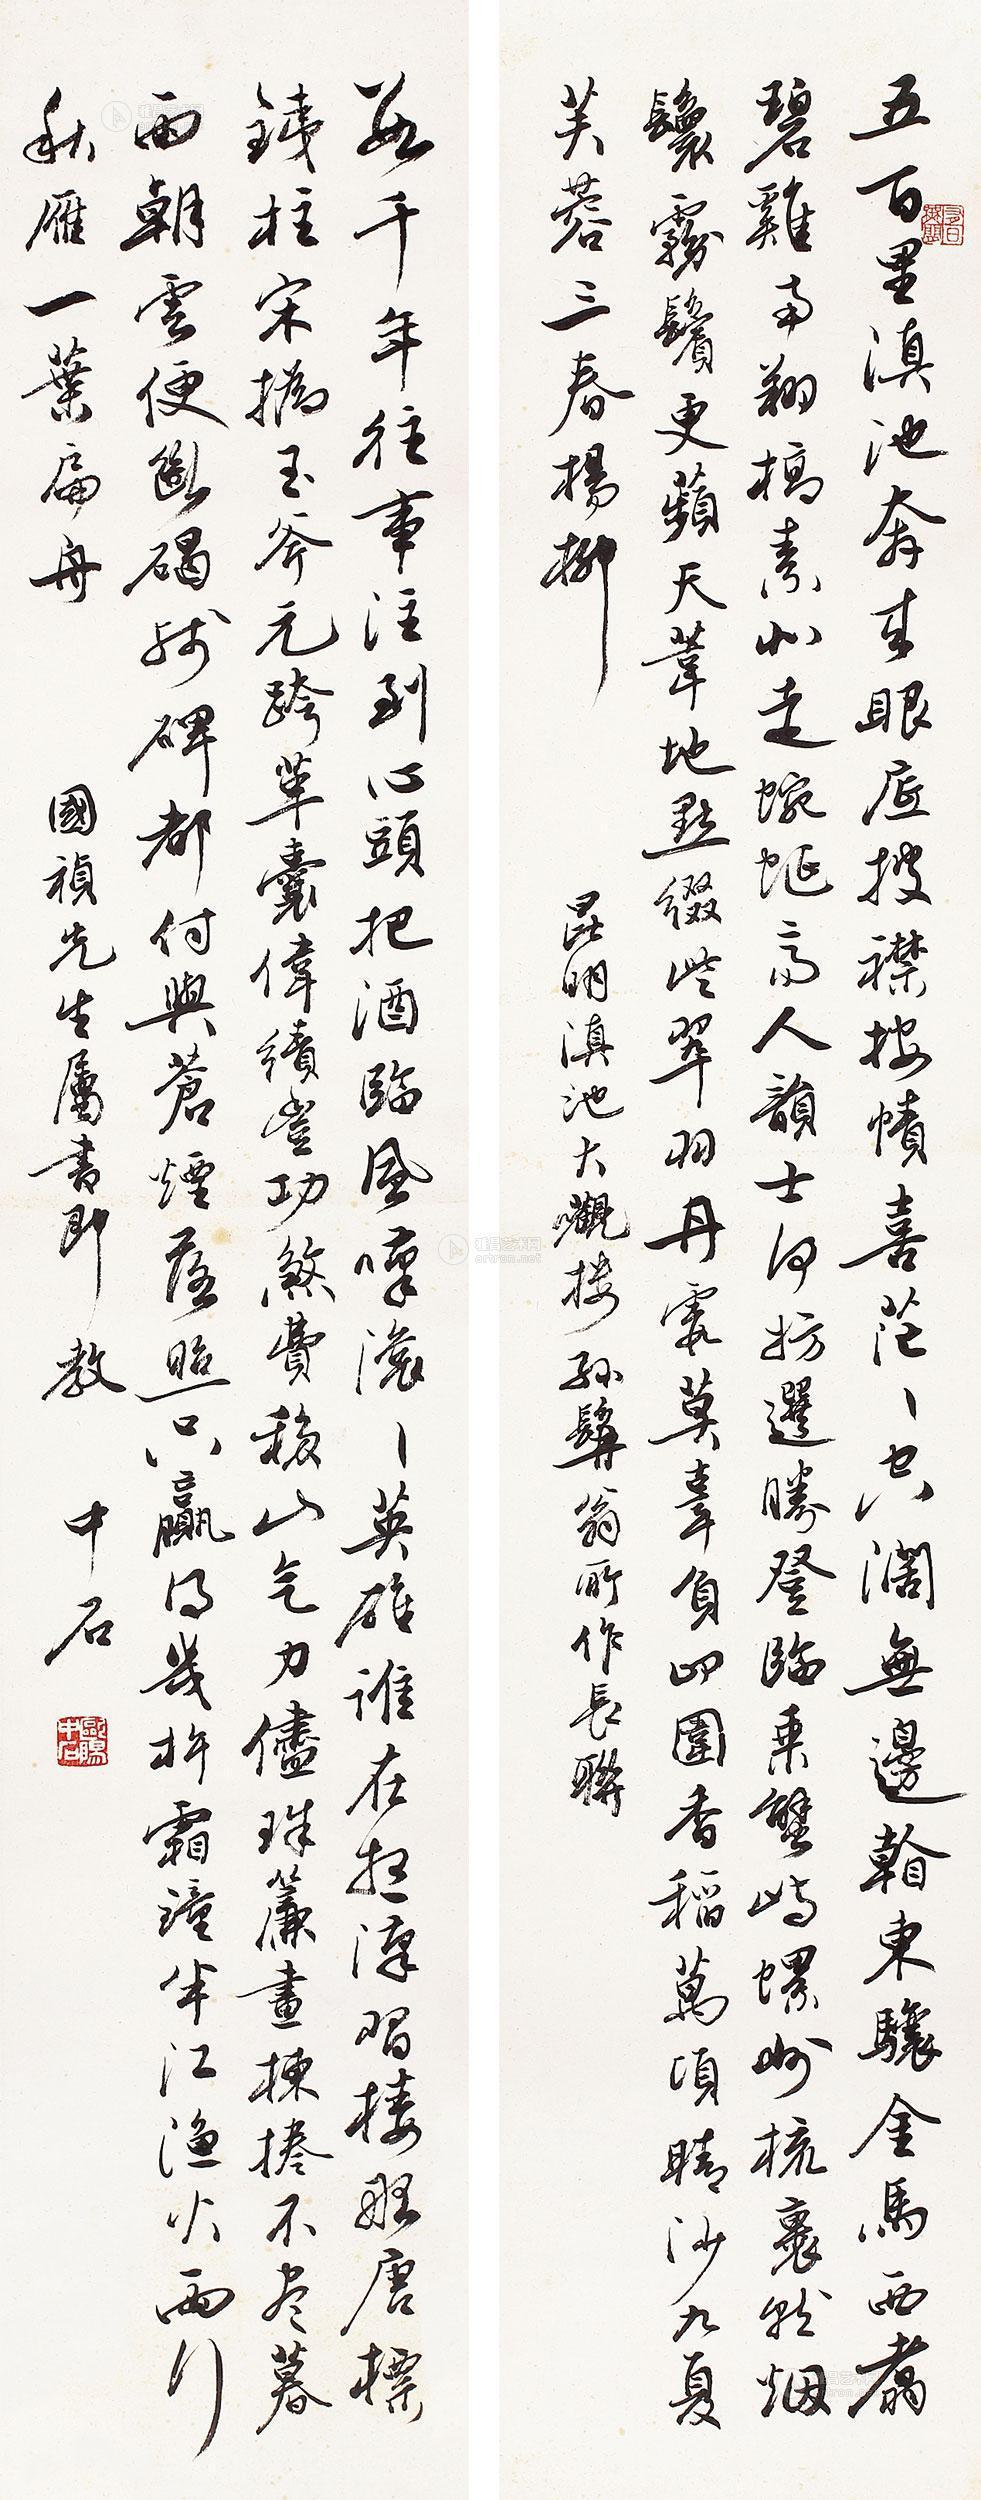 五百里滇池奔來眼底披襟按幘喜茫〻空闊無邊看東驤金馬西翥
碧雞南翔縞素北走蜿蜒高人韻士何妨選勝登臨乘蟹嶼螺州梳裹就烟
鬟霧鬢更蘋天葦地點綴些翠羽丹霞莫辜負四圍香稻萬頃晴沙九夏
芙蓉三春楊柳
昆明滇池大觀樓孫髯翁所作長聯
數千年往事注到心頭把酒臨風嘆滾〻英雄誰在想漢習樓船唐標
鐵柱宋揮玉斧元跨革囊偉績豐功煞費移山气力儘珠簾畫棟捲不盡暮
雨朝雲便斷碣殘碑都付與蒼煙落照只贏得幾杵霜鐘半江漁火兩行
秋雁一葉扁舟
國禎先生屬書即教 中石
歐陽中石
雅昌艺术网
artron.net